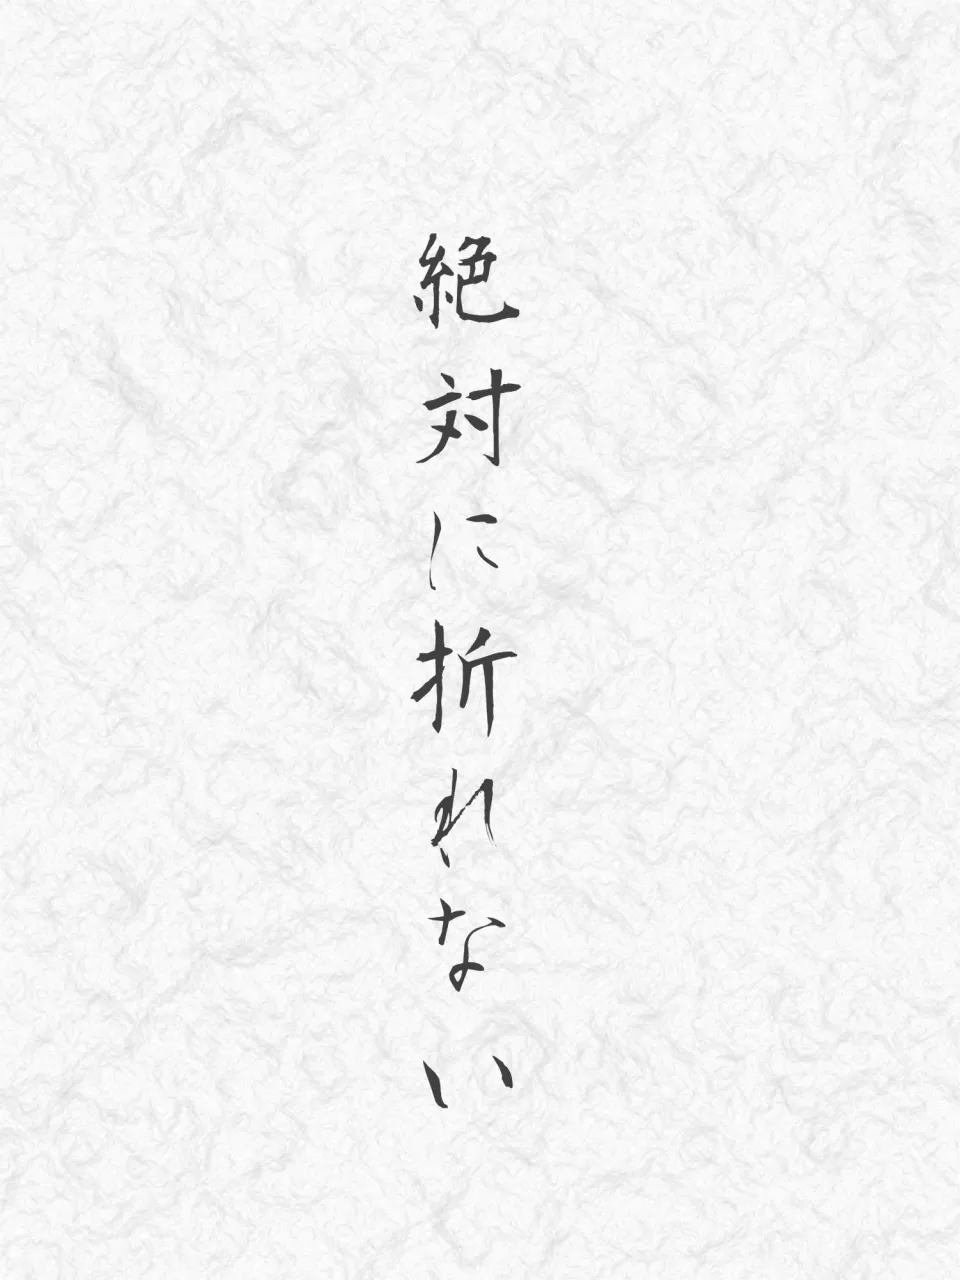 絶対に折れない